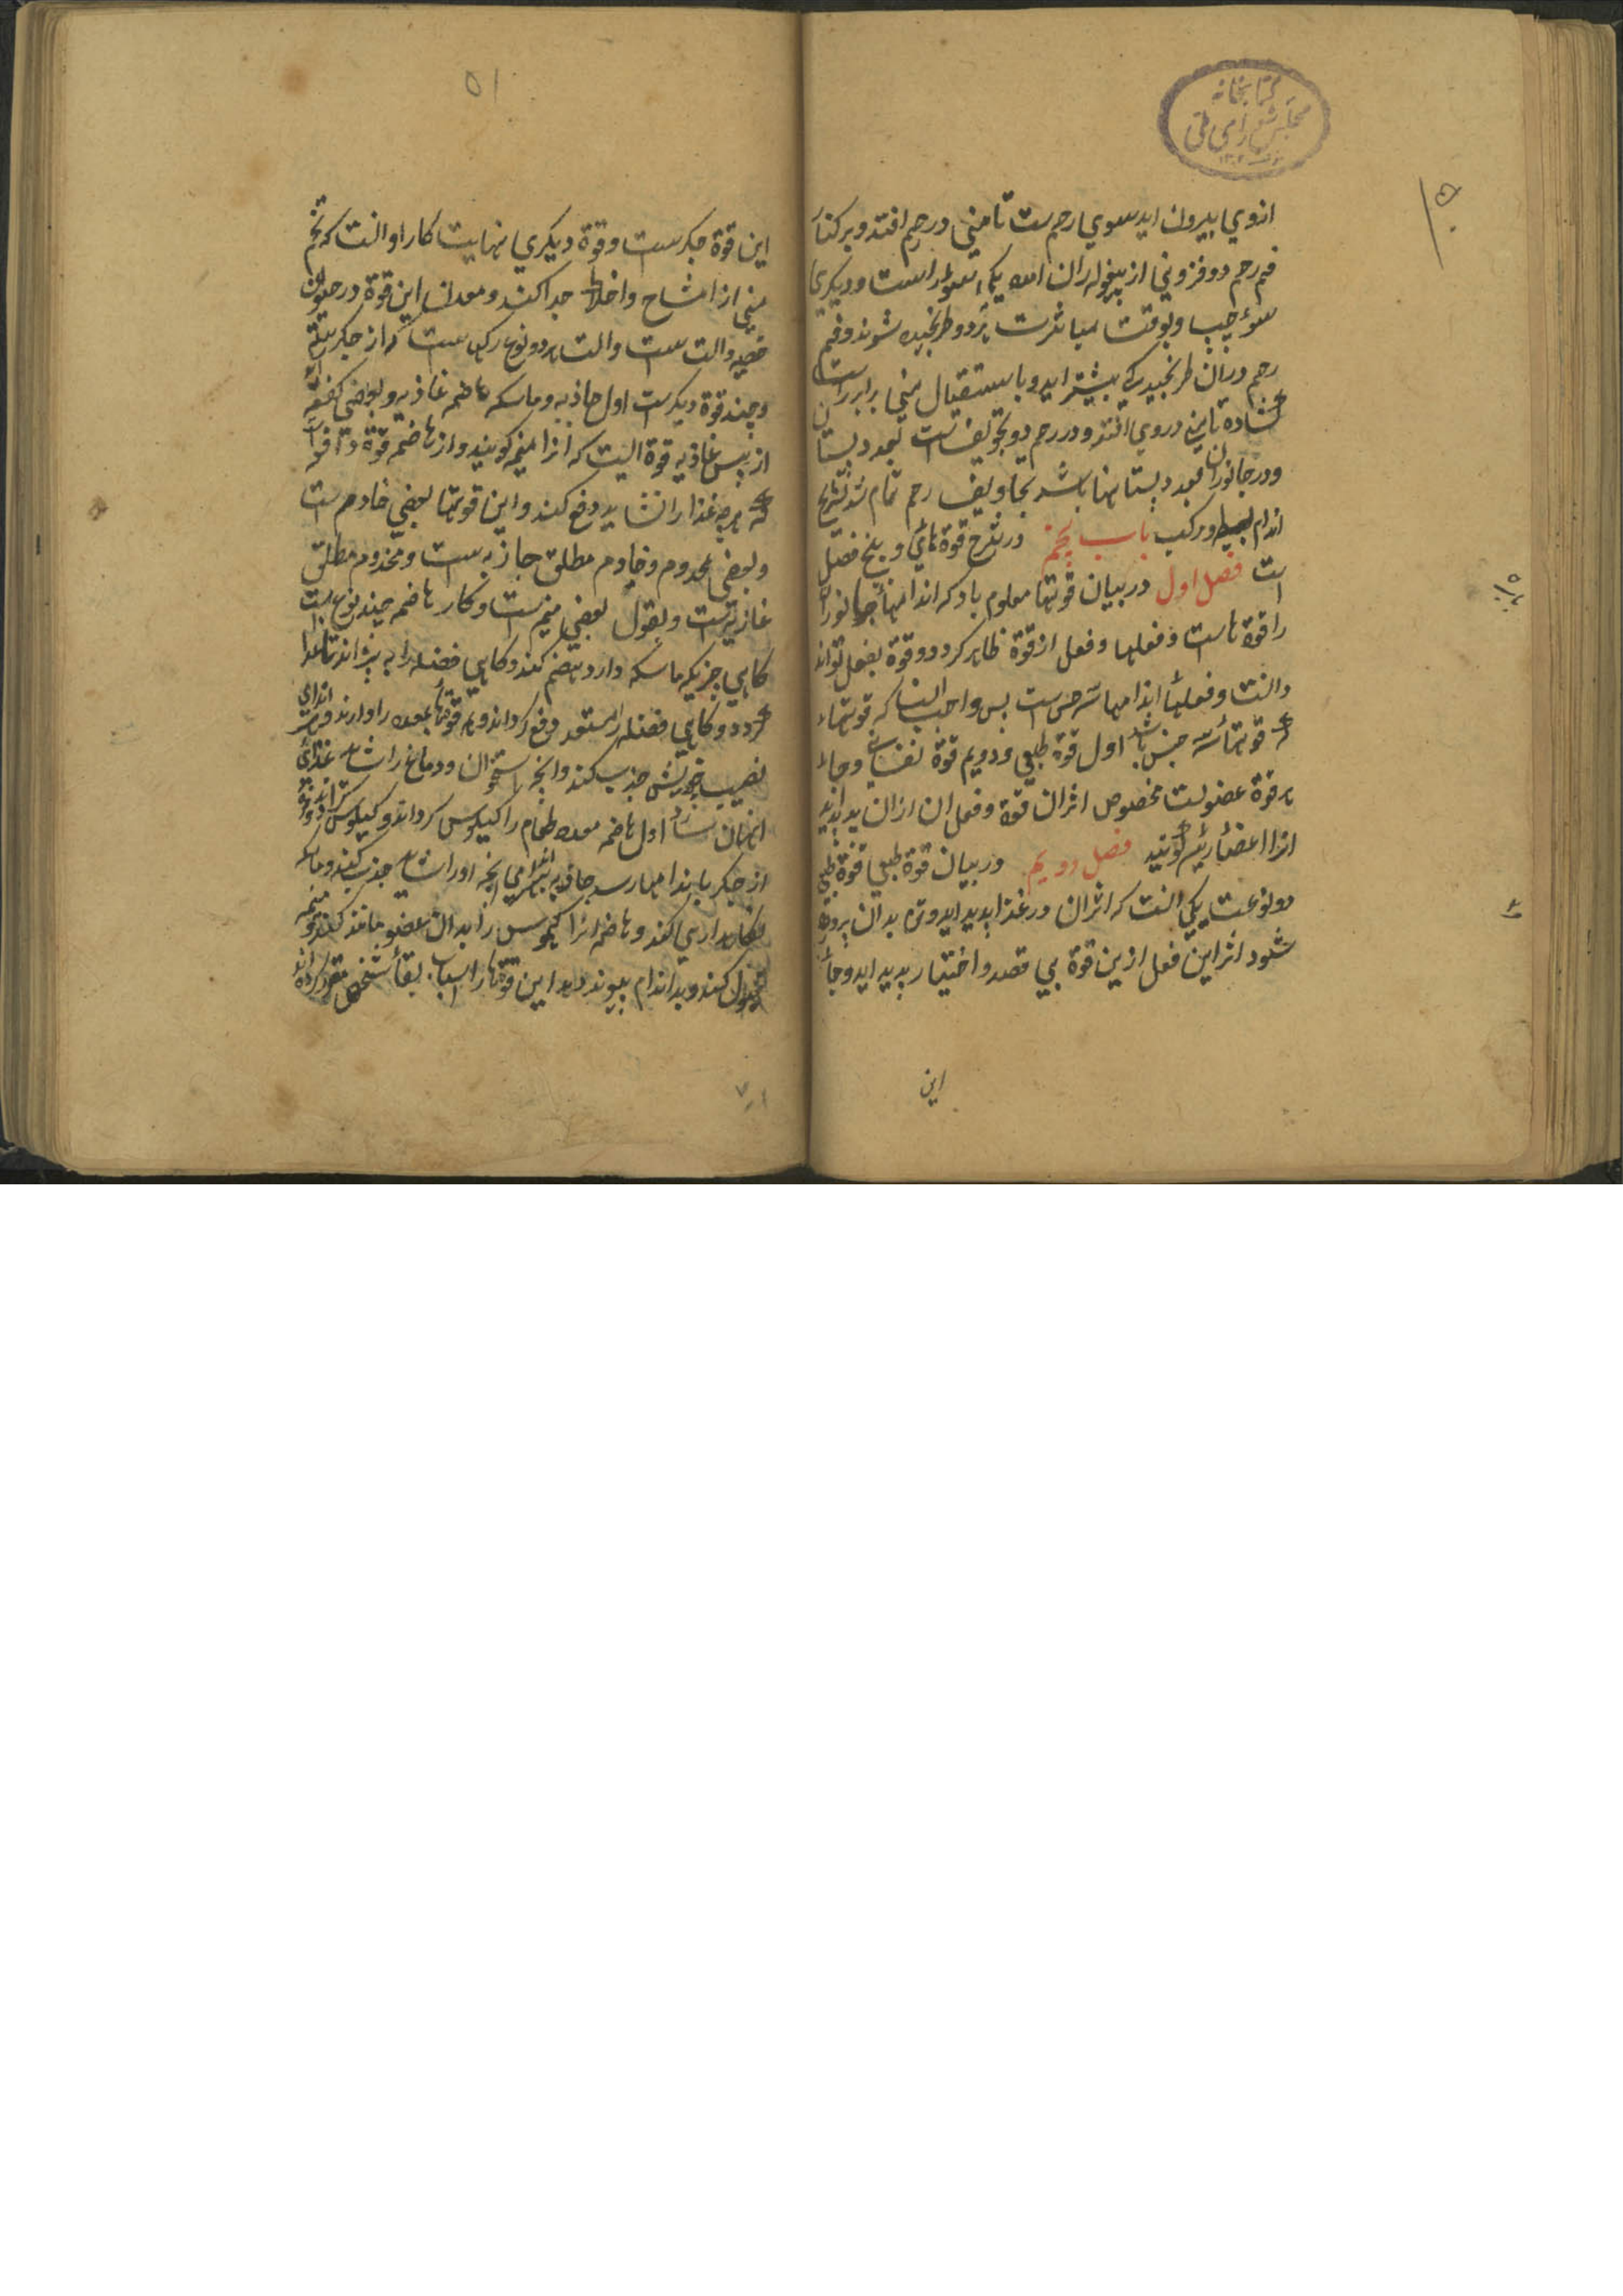 کتابخانه
مجلس شورای ملی
ازوي بيرون ايد سوي رحم ست تا مني در رحم افتد و بر کنار
فم رحم دو فزوني از بيغوله ران امده يکي سوي راست و ديکري
سوي چپ و بوقت مباشرت هر دو طرنجيده شوند و فم
رحم دران طرنجيدکي بيشتر ايد و باستقبال مني برابر راست
کشاده تا مني در وي افتد و در رحم دو تجويف است بعدد پستان
و در جانوران بعدد پستانها باشد تجاويف رحم تمام شد تشريح
اندام بسيط و مرکب باب پنجم در شرح قوة هائي و پنج فصل
است فصل اول در بيان قوتها معلوم باد که اندامهاء جانوران
را قوة هاست و فعلها و فعل از قوة ظاهر کردد و قوة بفعل توان
دانست و فعلهاء اندامها سه جنس ست بس واجب انست که قوتهاء
که قوتها سه جنس باشد اول قوة طبعي و دويم قوة نفساني و جاء
هر قوة عضوليست مخصوص اثر ان قوة و فعل ان ازان پديد ايد
انرا اعضاء رئيسه کويند فصل دويم در بيان قوة طبعي قوة طبعي
دو نوعست يکي انست که اثر ان در غذا پديد ايد و تن بدان پرورده
شود اثر اين فعل ازين قوة بي قصد و اختيار پديد ايد و جاء
اين
۵۱
اين قوة جکرست و قوة ديکري نهايت کار او انست که تخم
مني از امشاج و اخلاط جدا کند و معدن اين قوة در حيوان
خصيه و الت ست و الت هر دو نوع رکهاست که از جکر رسته
و چند قوة ديکرست اول جاذبه و ماسکه هاضمه غاذيه و بعضي کفته اند
از پس غاذيه قوة ايست که انرا منميه کويند و از هاضمه قوة دافعه
که هرچه غذا را نشايد دفع کند و اين قوتها بعضي خادم ست
و بعضي مخدوم و خادم مطلق جاذبه ست و مخدوم مطلق
غاذيه است و بقول بعضي منميه است و کار هاضمه چند نوع است
کاهي چيزيکه ماسکه دارد هضم کند و کاهي فضله را بپزاند تا غذا
کردد و کاهي فضله را مستعد دفع کرداند و همه قوتها معده را دارند و هر اندامي
نصيب خورش جذب کند و انچه استخوان و دماغ را شايد غذائي
انچنان سازد اول هاضمه معده طعام را کيلوس کرداند و کيلوس
از جکر باندامها رسد جاذبه هر اندامي انچه او را شايد جذب کند و ماسکه
نکاهداري کند و هاضمه انرا کيموس را بدان عضو مانند کند و منميه
قبول کند و بداندام پيوند دهد اين قوتها را اسباب بقاء شخص مقرر کرده اند